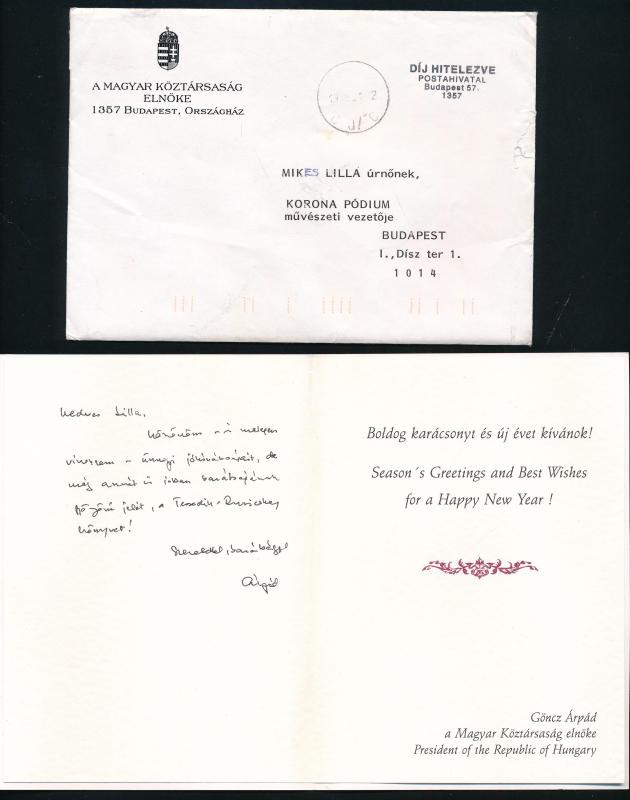 A MAGYAR KÖZTÁRSASÁG
ELNÖKE
1357 BUDAPEST, ORSZÁGHÁZ
DÍJ HITELEZVE
POSTAHIVATAL
Budapest 57.
1357
MIKES LILLA úrnőnek,
KORONA PÓDIUM
művészeti vezetője
BUDAPEST
I.,Dísz ter 1.
1014
Kedves Lilla,
köszönöm - s melegen
viszonzom - ünnepi jókívánságait, de
még annál is jobban barátságának
könyvet!
Szeretettel, barátsággal
Árpád
Boldog karácsonyt és új évet kívánok!
Season´s Greetings and Best Wishes
for a Happy New Year !
Göncz Árpád
a Magyar Köztársaság elnöke
President of the Republic of Hungary